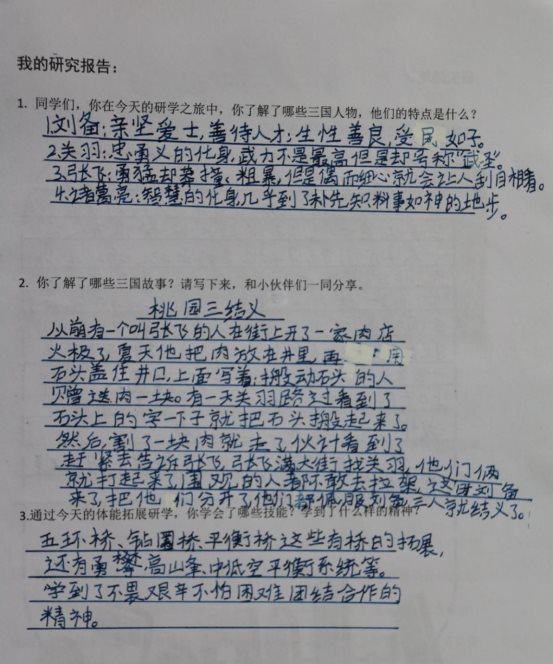 我的研究报告：
1. 同学们，你在今天的研学之旅中，你了解了哪些三国人物，他们的特点是什么？
1.刘备：亲坚爱士，善待人才；生性善良，爱民如子。
2.关羽：忠勇义的化身，武力不是最高但是却号称“武圣”。
3.张飞：勇猛却莽撞、粗暴，但是偶而细心就会让人刮目相看。
4.诸葛亮：智慧的化身几乎到了未卜先知料事如神的地步。
2. 你了解了哪些三国故事？请写下来，和小伙伴们一同分享。
桃园三结义
从前有一个叫张飞的人在街上开了一家肉店
火极了，夏天他把肉放在井里，再用
石头盖住井口，上面写着：搬动石头的人
赠送肉一块。有一天关羽路过看到了
石头上的字一下子就把石头搬起来了。
然后，割了一块肉就走了，伙计看到了
赶紧去告诉张飞，张飞满大街找关羽，他们俩
就打起来了，围观的人都不敢去拉架，这时刘备
来了把他们分开了他们都佩服刘备三人就结义了。
3.通过今天的体能拓展研学，你学会了哪些技能？学到了什么样的精神？
五环桥、钻圈桥、平衡桥这些有桥的拓展，
还有勇攀高山峰、中低空平衡系统等。
学到了不畏艰辛不怕困难团结合作的
精神。